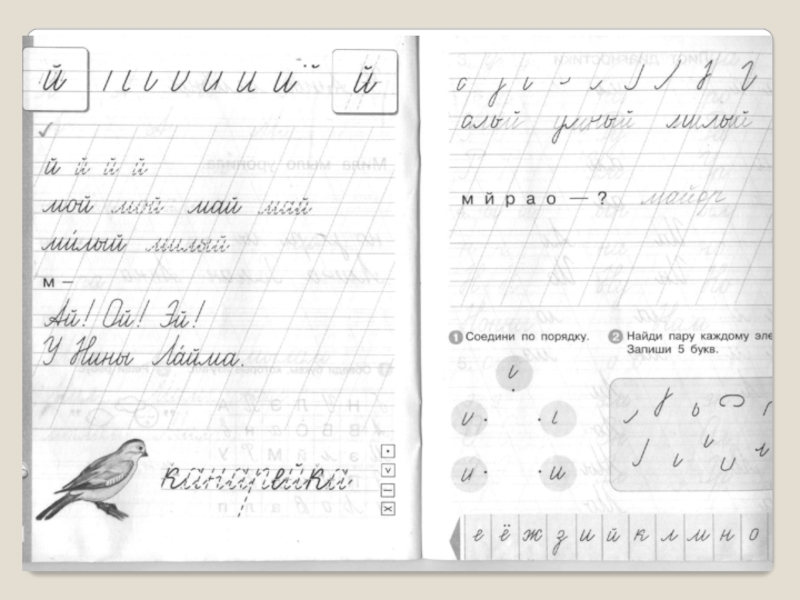 й й
й й й й
мой мой май май
милый милый
м –
Ай! Ой! Эй!
У Нины Лайма.
канарейка
алый умный милый
м й р а о — ? майор
1 Соедини по порядку.
2 Найди пару каждому эле
Запиши 5 букв.
е ё ж з и й к л м н о